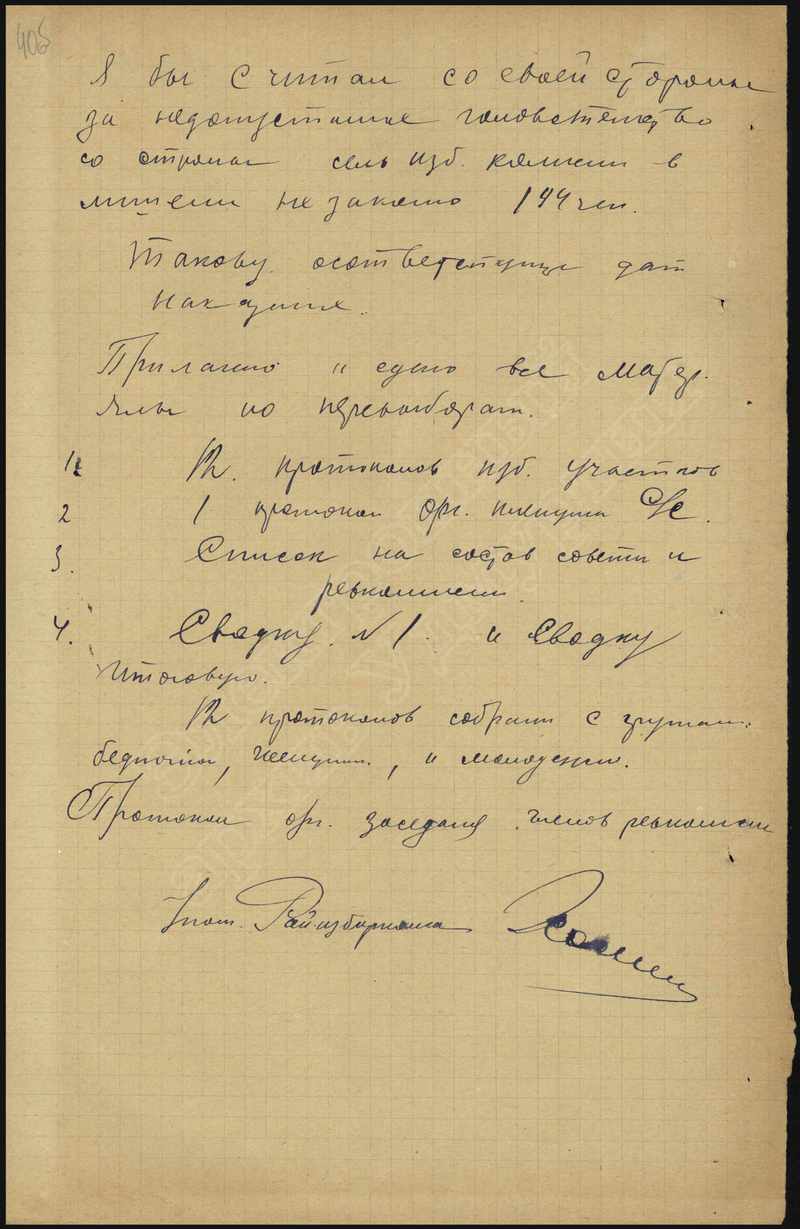 405
Я бы считал со своей стороны
за недопустимое головотяпство
со сторон сель изб. комисии в
лишении незаконо 144 чел.
Такову соответствующе дат
наказание.
Прилагаю и судно все матер.
ялы по перевыборам.
1. протоколов изб. участков
2 1 протокол орг. пленума С/с.
3. Список на состав совета и
ревкомисии
4. Сводку N 1. и Сводку
итоговую.
протоколов собрании с групам.
беднота, женщин, и молодежи.
Протокол орг. заседаня членов ревкомисии
Упол. Райизбиркома